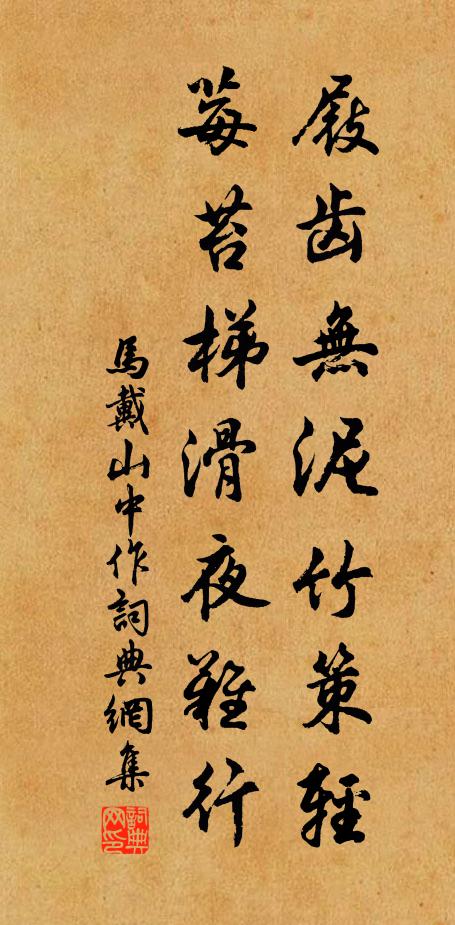 屐齿無泥竹策輕
莓苔梯滑夜難行
馬戴山中作詞典網集
詞典网印